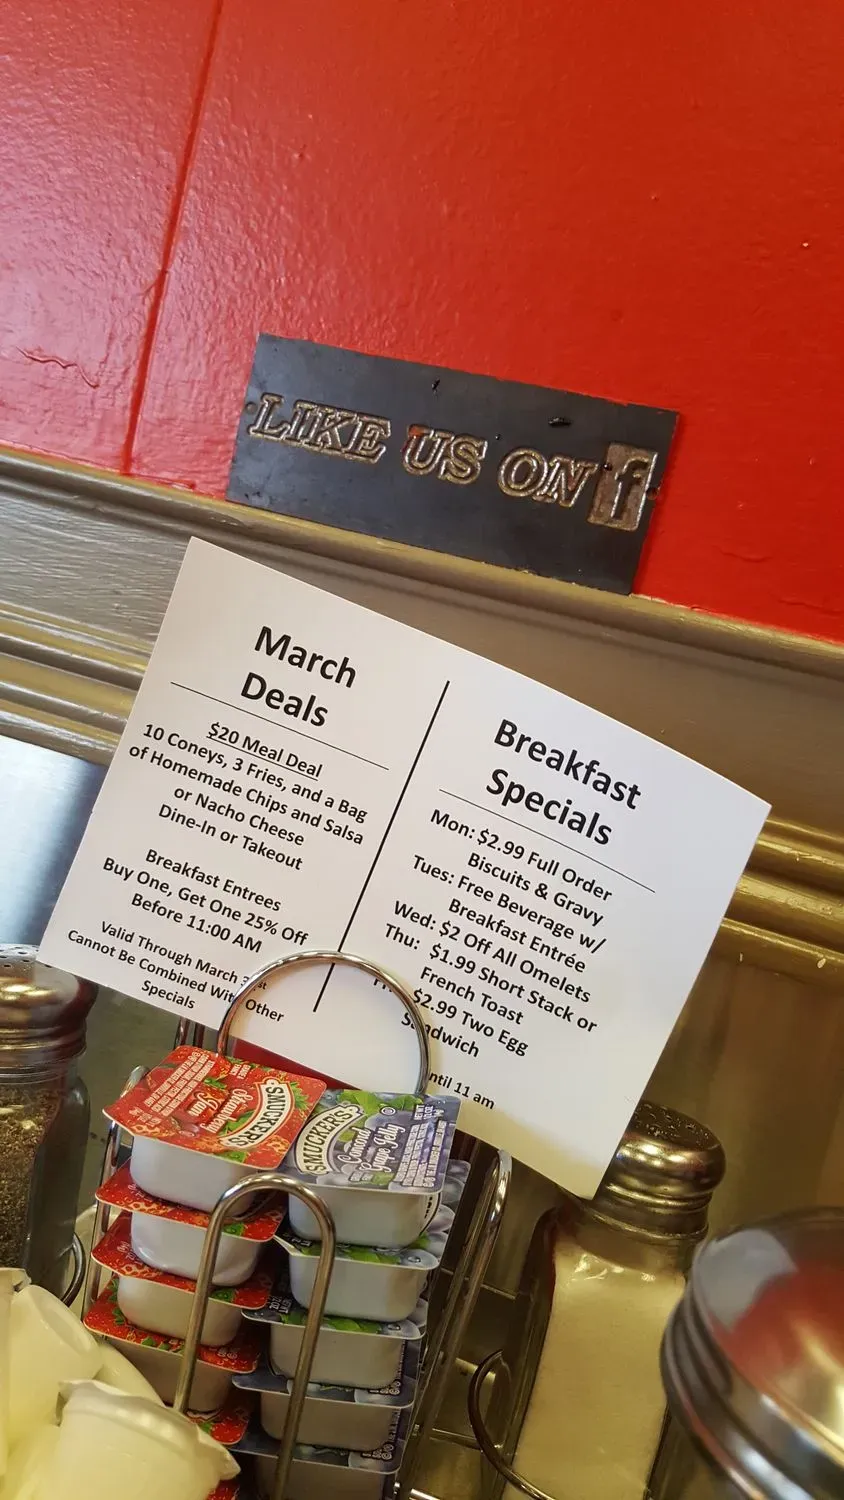 LIKE US ON f
March
Deals
$20 Meal Deal
10 Coneys, 3 Fries, and a Bag
of Homemade Chips and Salsa
or Nacho Cheese
Dine-In or Takeout
Breakfast Entrees
Buy One, Get One 25% Off
Before 11:00 AM
Valid Through March
Cannot Be Combined With Other
Specials
Breakfast
Specials
Mon: $2.99 Full Order
Biscuits & Gravy
Tues: Free Beverage w/
Breakfast Entrée
Wed: $2 Off All Omelets
Thu: $1.99 Short Stack or
French Toast
$2.99 Two Egg
Sandwich
11 am
SMUCKER'S
Strawberry
Jam
SMUCKER'S
Concord
Grape Jelly